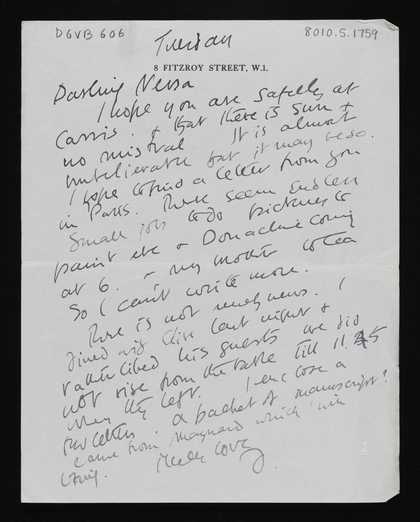 DGVB 606
8010.5.1759
Tuesday
8 FITZROY STREET, W.1.
Darling Nessa
I hope you are safely at
Cassis. & that there is sun &
no mistral It is almost
unbelievable but it may be so.
I hope to find a letter from you
in Paris. There seem endless
small jobs to do pictures to
paint etc & Donachie coming
at 6. & my mother to tea
So I can't write more.
There is not much news. I
dined with Clive last night &
rather liked his guests we did
not rise from the table till 11.45
when they left. I enclose a
few letters. a packet of manuscript?
came from Maynard which I will
bring.
Much love